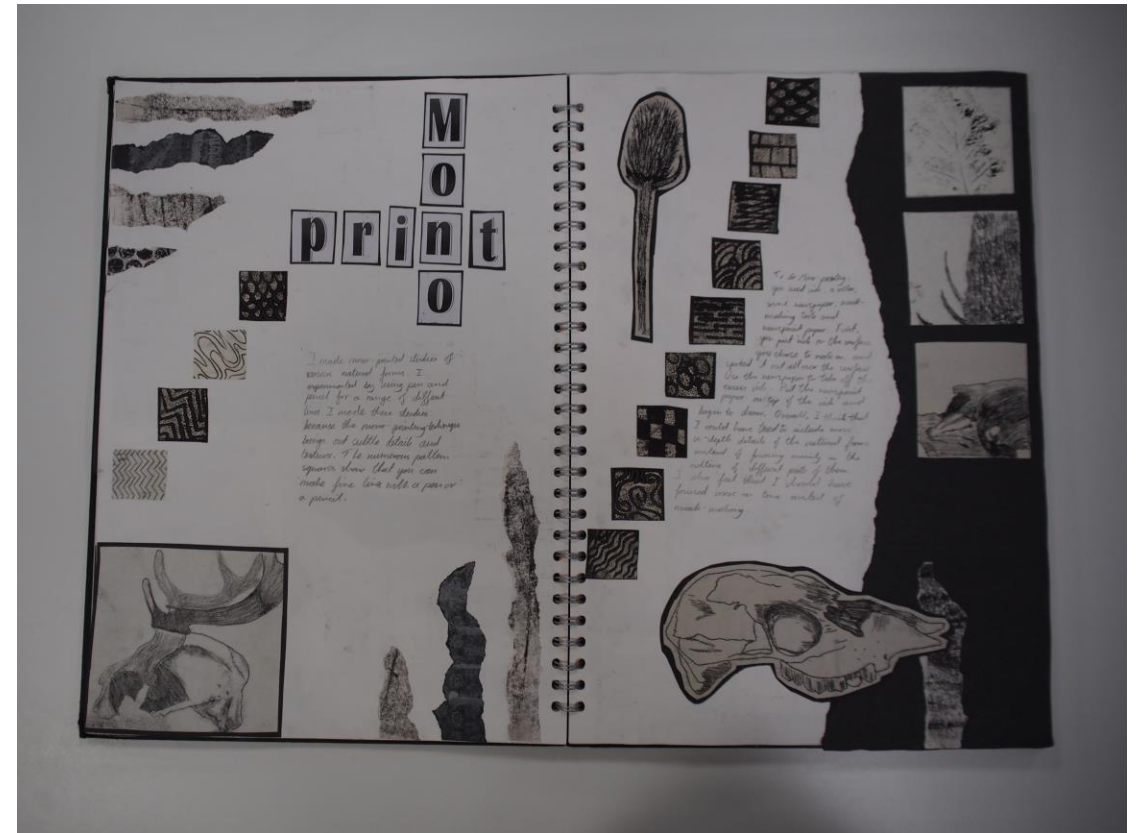 Mono
print
I made mono-printed studies of
various natural forms. I
experimented by using pen and
pencil for a range of different
lines. I made these studies
because the mono-printing technique
brings out subtle details and
textures. The numerous pattern
squares show that you can
make fine lines with a pen or
a pencil.
To do Mono-printing,
you need ink, a roller,
some newspaper, mark-
making tools and
newsprint paper. First,
you put ink on the surface
you chose to work on and
spread it out all over the surface.
Use the newspaper to take off the
excess ink. Put the newsprint
paper on top of the ink and
begin to draw. Overall, I think that
I could have tried to include more
in-depth details of the natural forms
instead of focusing mainly on the
outlines of different parts of them.
I also feel that I should have
focused more on tone instead of
mark-making.